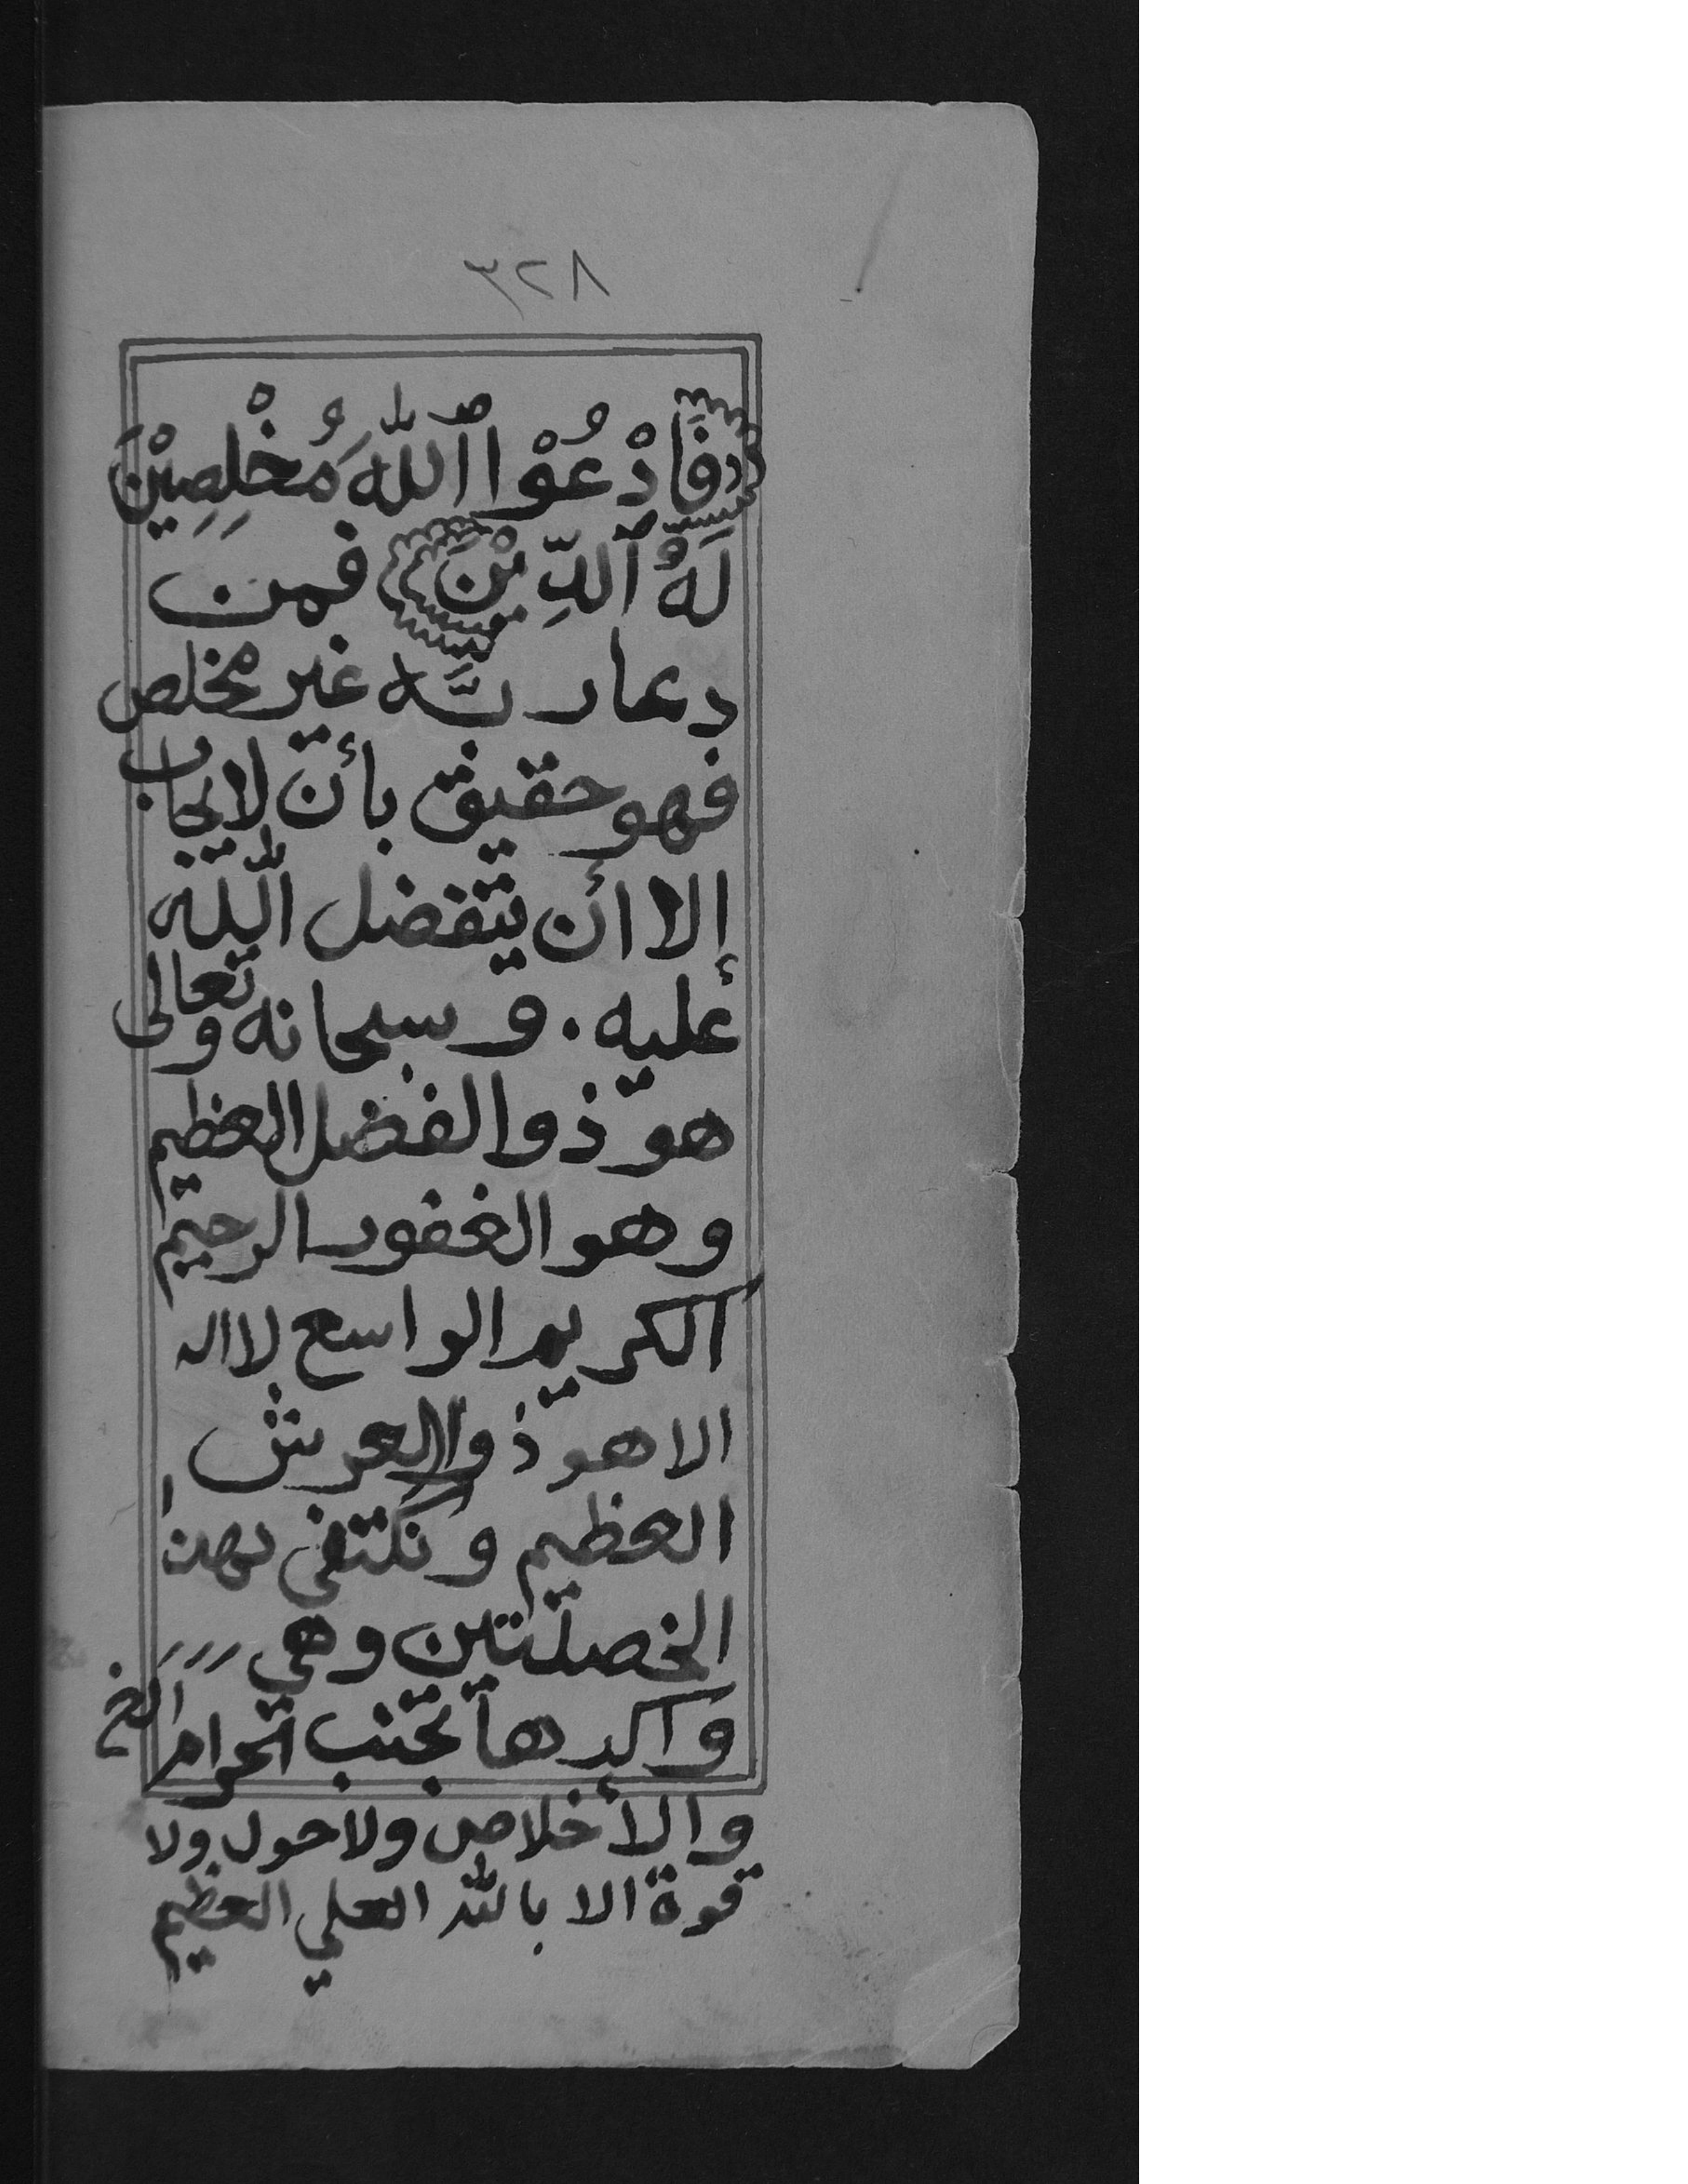 ٨٢٣
فَادْعُوْا ٱللّٰهَ مُخْلِصِيْنَ
لَهُ ٱلدِّيْنَ فمن
دعا ربَّه غير مخلص
فهو حقيق بأن لا يجاب
إلا أن يتفضل اللّٰه
عليه . و سبحانه وتعالى
هو ذوا الفضل العظيم
وهو الغفور الرحيم
الكريم الواسع لا اله
الا هو ذوا العرش
العظيم و نكتفى بهذا
الخصلتين وهي
وآكدها تجتنب الحرام الخ
والأخلاص ولا حول ولا
قوة الا باللّٰه العلي العظيم